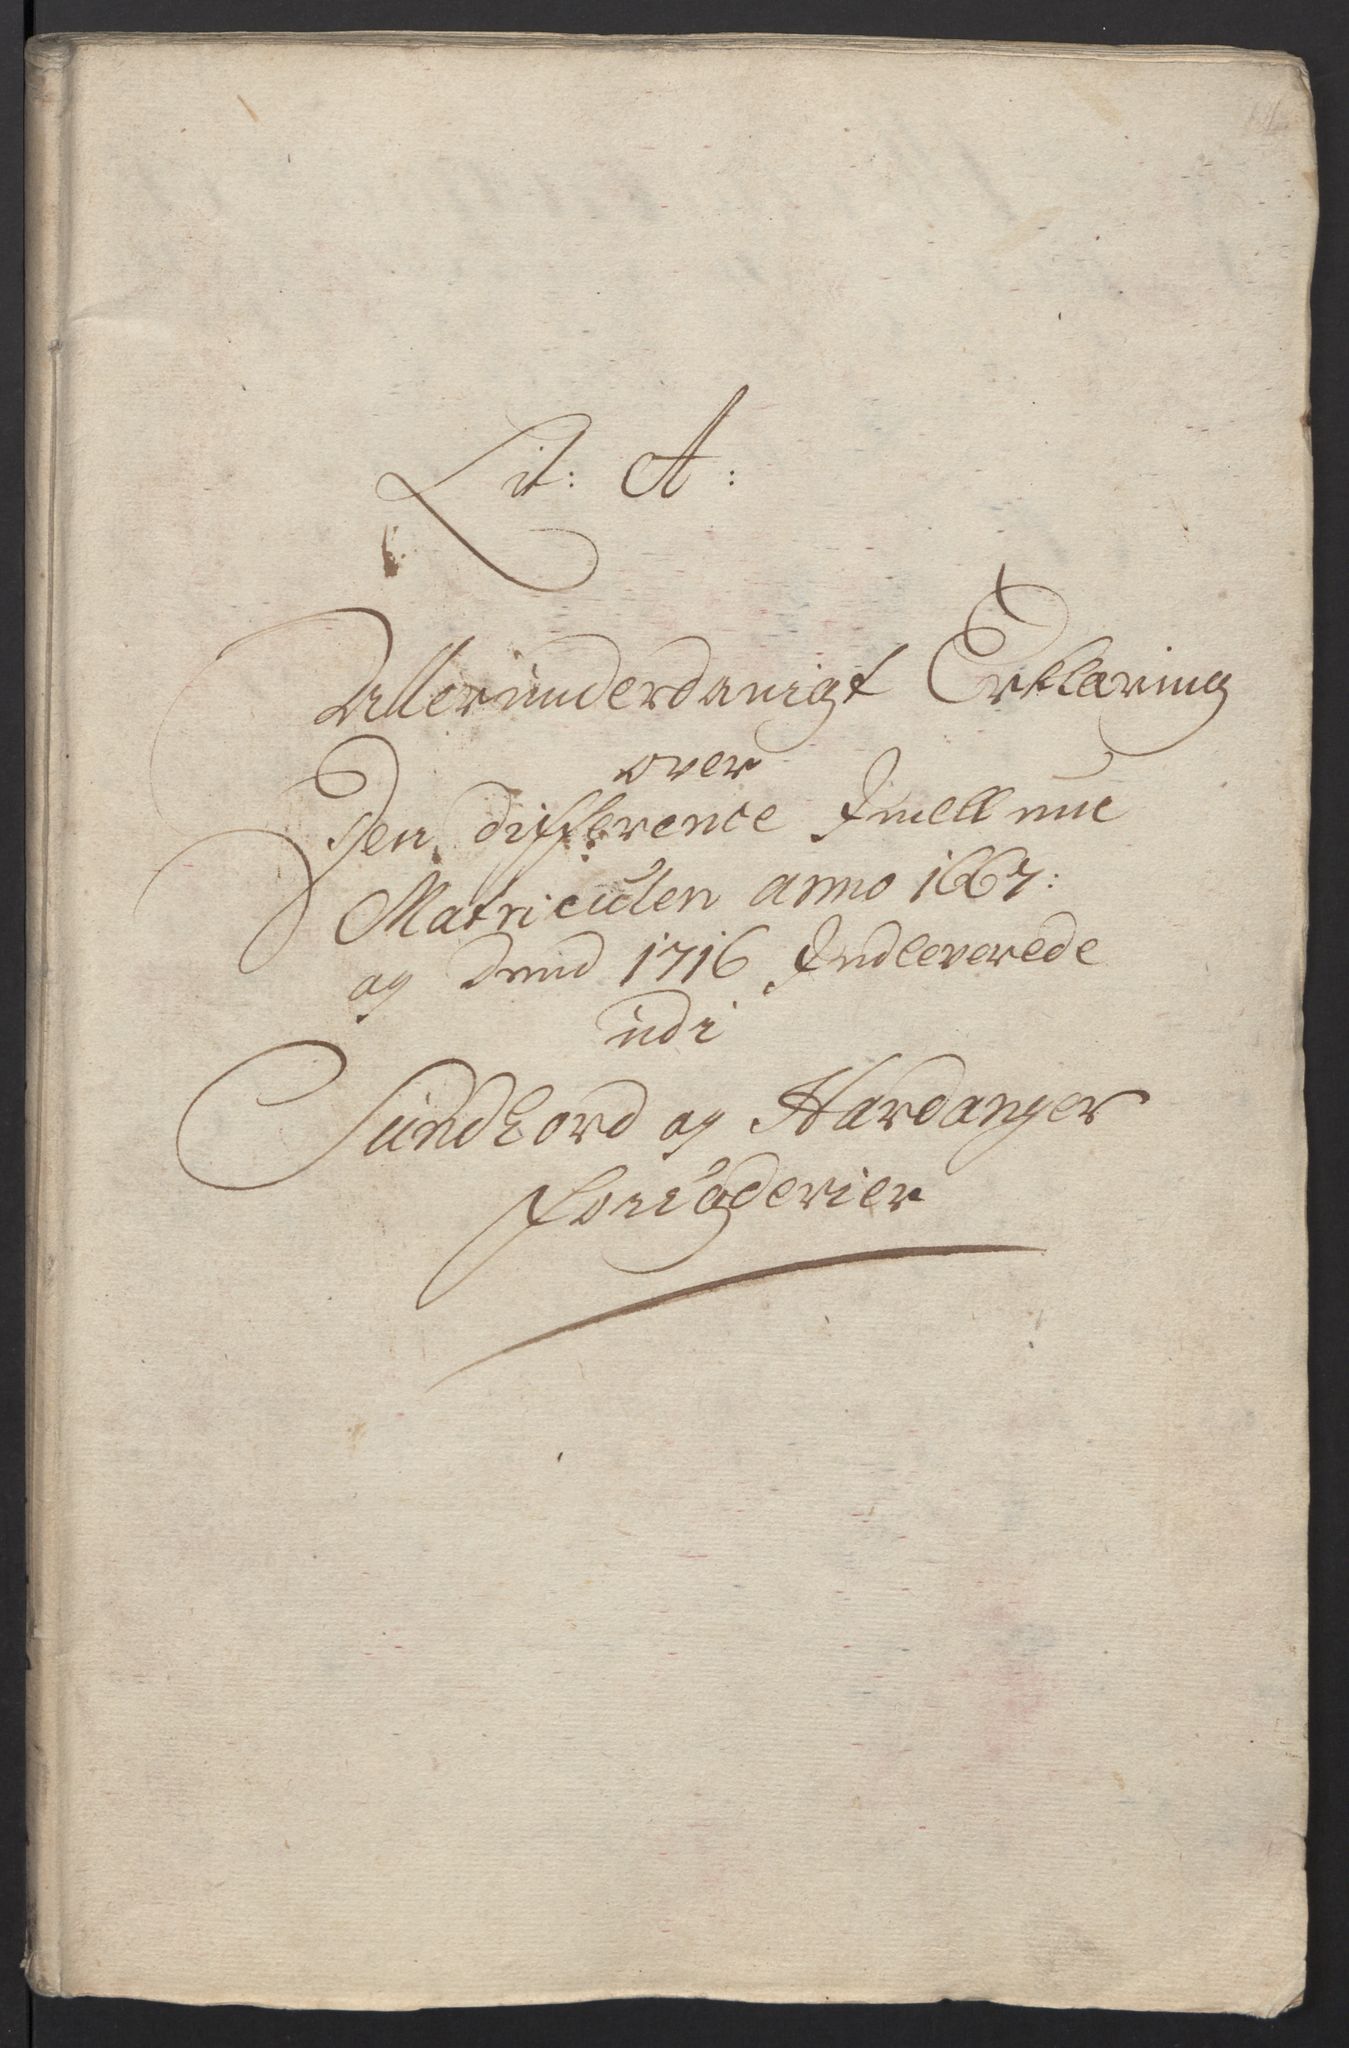 Lit: A:
Alleründerdanigt Erklæring
over
Den difference Imellum
Matriculen anno 1667:
og dend 1716 Indleverede
udi
Sündhord og Hardanger
fougderier